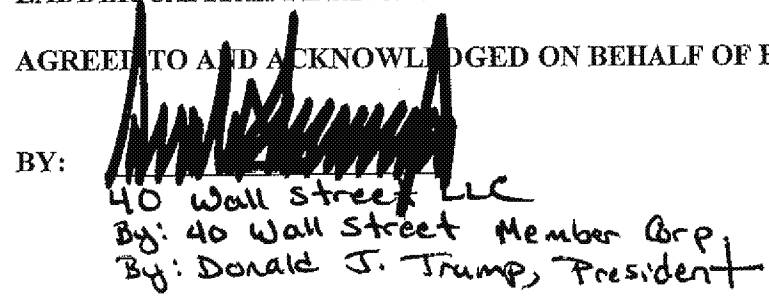 AGREED TO AND ACKNOWLEDGED ON BEHALF OF
BY:
40 Wall Street LLC
By: 40 Wall Street Member Corp.
By: Donald J. Trump, President